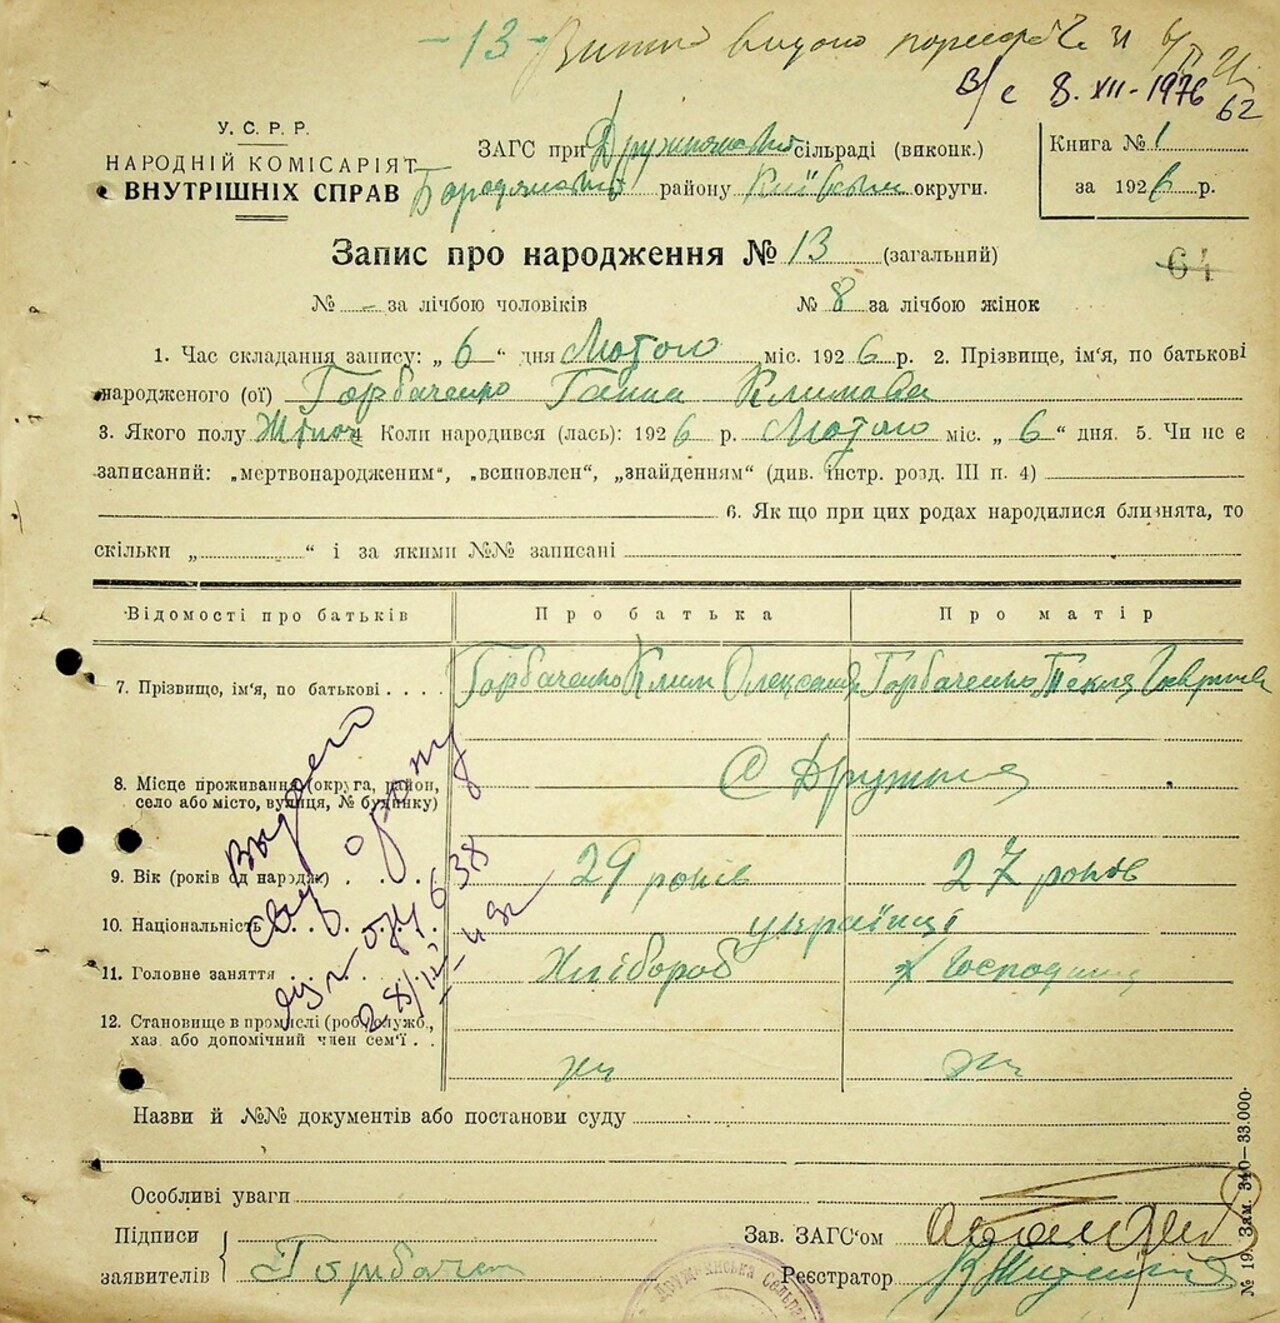 - 13 -
В/с 8. XII - 1976
62
У. С. Р. Р.
НАРОДНІЙ КОМІСАРІЯТ
ВНУТРІШНІХ СПРАВ
ЗАГС при сільраді (виконк.)
району округи.
Книга № 1
за 1926 р.
Запис про народження № 13 (загальний)
64
№ - за лічбою чоловіків № 8 за лічбою жінок
1. Час складання запису: „ 6 “ дня Лютого міс. 1926 р. 2. Прізвище, ім'я, по батькові
народженого (ої) Горбаченко Ганна Климова
3. Якого полу Жіноч 4 Коли народився (лась): 1926 р. Лютого міс. „ 6 “ дня. 5. Чи не є
записаний: „мертвонародженим“, „всиновлен“, „знайденим“ (див. інстр. розд. III п. 4)
6. Як що при цих родах народилися близнята, то
скільки „ “ і за якими №№ записані
Відомості про батьків Про батька Про матір
7. Прізвище, ім'я, по батькові . . . . Горбаченко Клим Горбаченко Текля
8. Місце проживання (округа, район,
село або місто, вулиця, № будинку)
С Дружня
9. Вік (років од народж) . . . . 29 років 27 років
10. Національність . . . . українці
11. Головне заняття . . . . Хлібороб Господиня
12. Становище в промислі (роб., служб.,
хаз. або допомічний член сем'ї . .
Выдано
Назви й №№ документів або постанови суду
Особливі уваги
Підписи
заявителів
Зав. ЗАГС'ом
Реєстратор
Дружнянська Сельра
№ 19. Зам. 340—33.000.